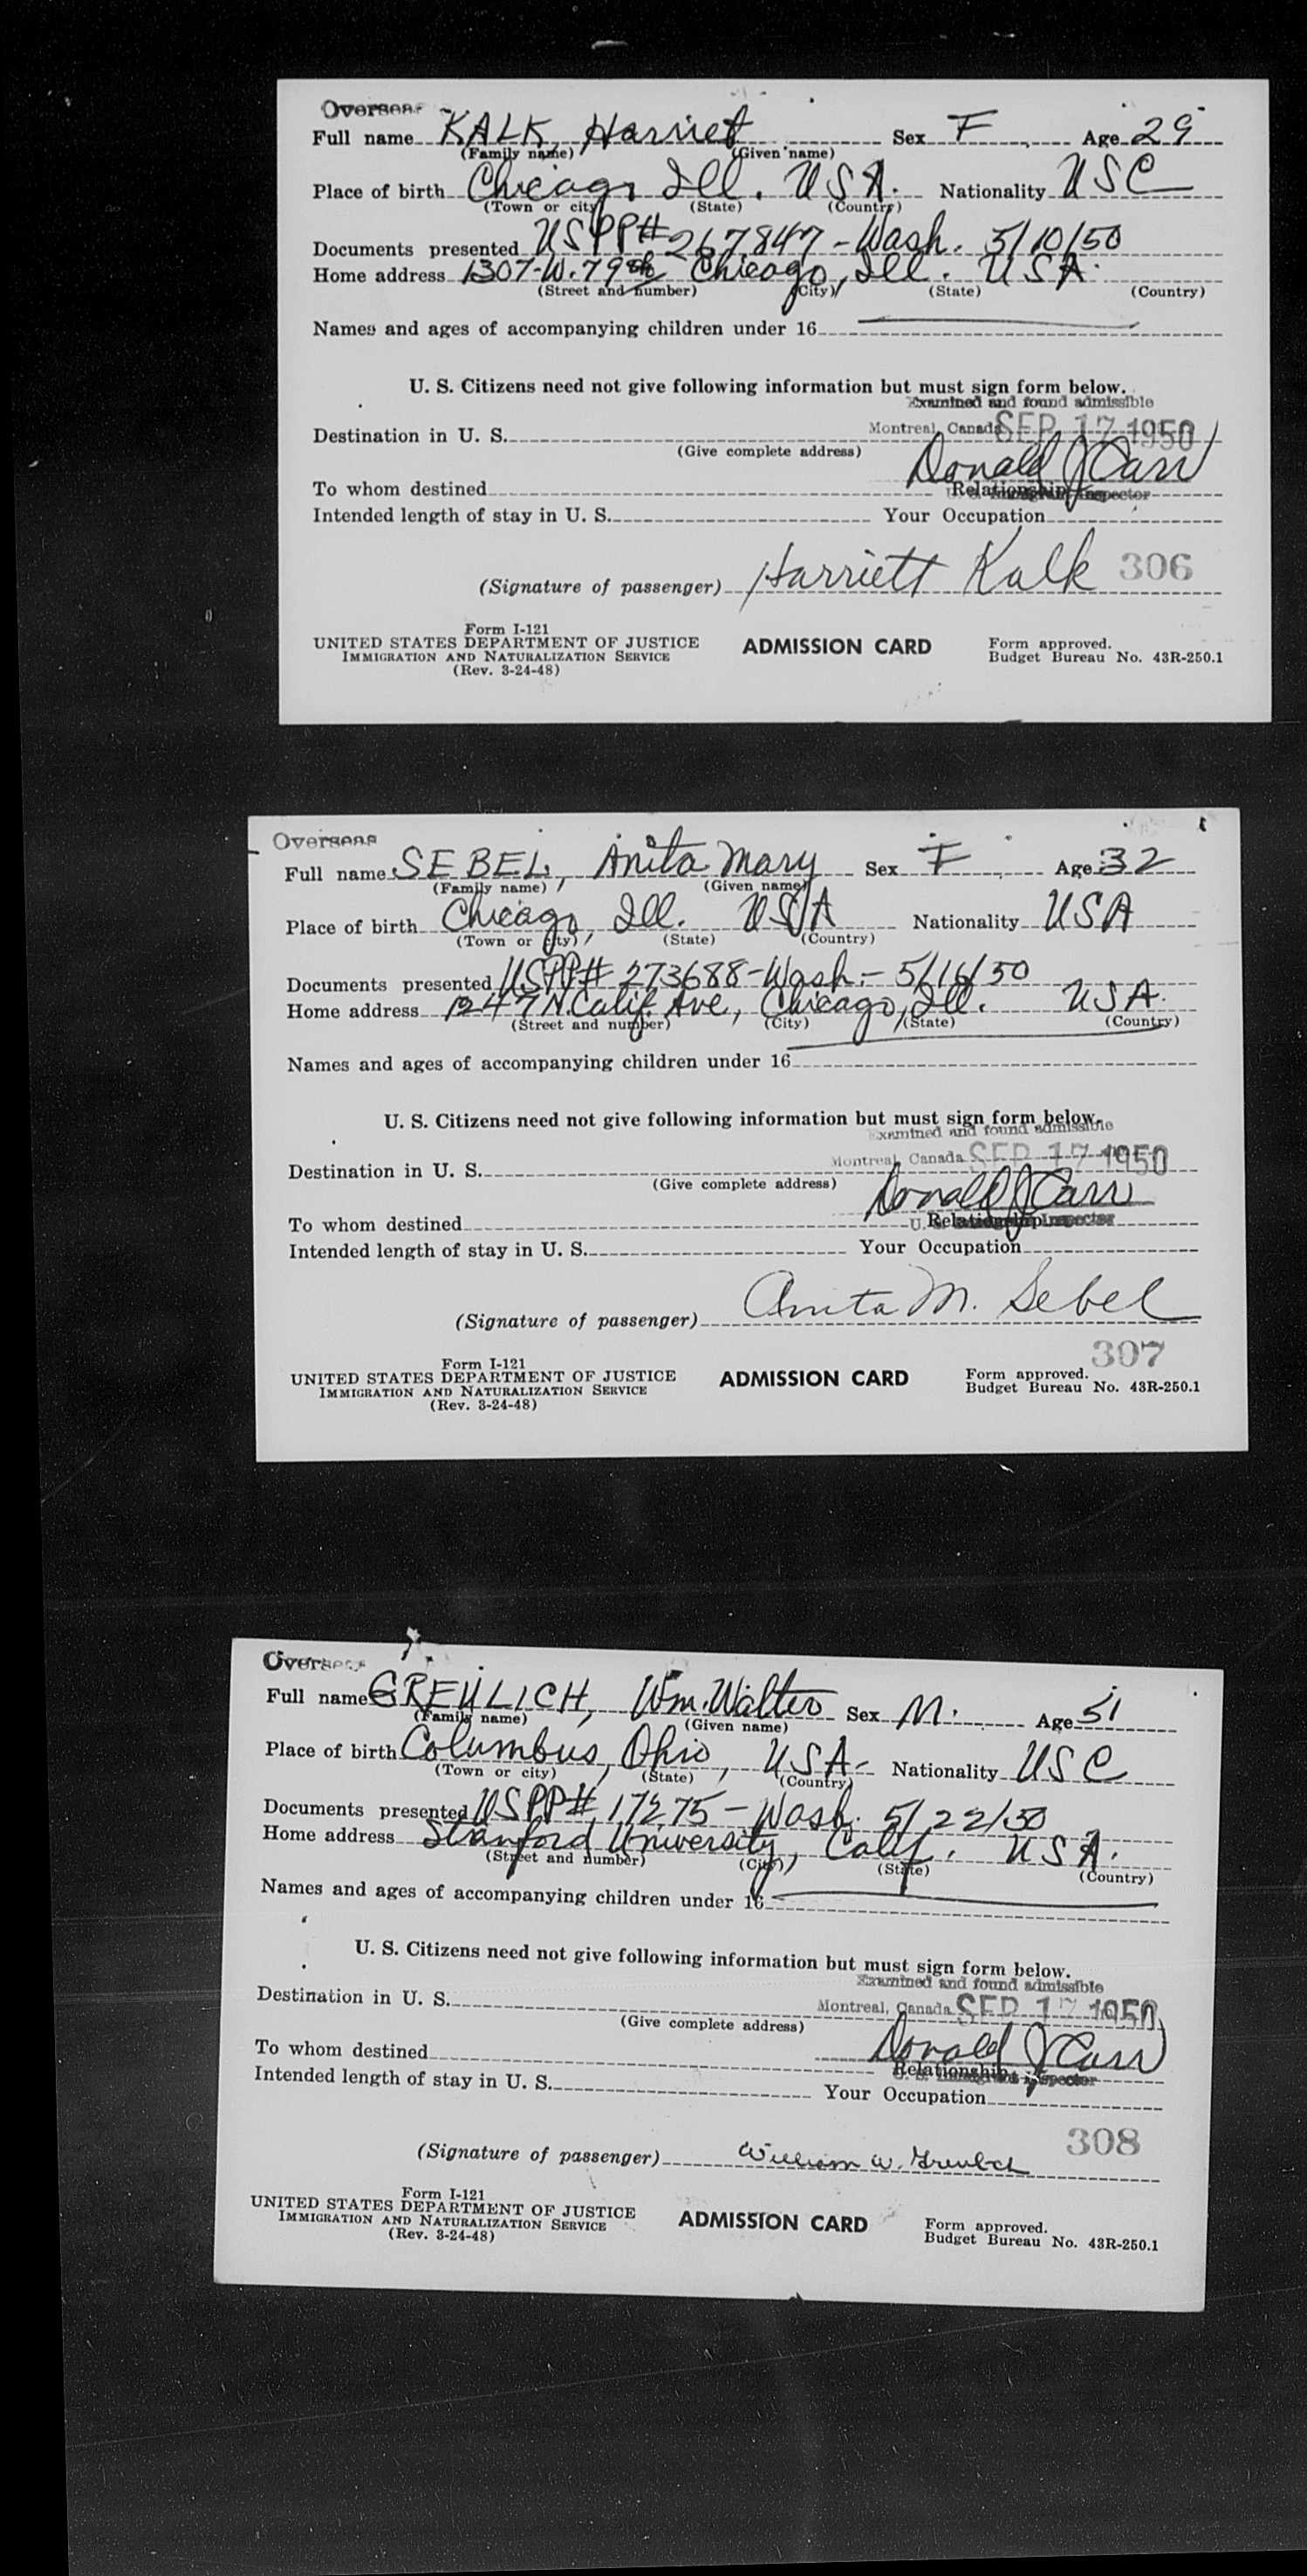 Overseas
Full name KALK, Harriet Sex F Age 29
(Family name) (Given name)
Place of birth Chicago Ill. USA. Nationality USC
(Town or city) (State) (Country)
Documents presented USPP# 267847 - Wash. 5/10/50
Home address 1307-W. 79th Chicago, Ill. USA.
(Street and number) (City) (State) (Country)
Names and ages of accompanying children under 16
U. S. Citizens need not give following information but must sign form below.
Examined and found admissible
Destination in U. S. Montreal, Canada SEP 17 1950
(Give complete address)
Donald J Carr
To whom destined Relationship Inspector
Intended length of stay in U. S. Your Occupation
(Signature of passenger) Harriett Kalk 306
Form I-121
UNITED STATES DEPARTMENT OF JUSTICE ADMISSION CARD Form approved.
IMMIGRATION AND NATURALIZATION SERVICE Budget Bureau No. 43R-250.1
(Rev. 3-24-48)
Overseas
Full name SEBEL, Anita Mary Sex F Age 32
(Family name) (Given name)
Place of birth Chicago, Ill. USA Nationality USA
(Town or city) (State) (Country)
Documents presented USPP# 273688-Wash.- 5/16/50
Home address 1247 N. Calif. Ave, Chicago, Ill. USA.
(Street and number) (City) (State) (Country)
Names and ages of accompanying children under 16
U. S. Citizens need not give following information but must sign form below.
Examined and found admissible
Destination in U. S. Montreal, Canada SEP 17 1950
(Give complete address)
Donald J Carr
To whom destined U. S. Relationship Inspector
Intended length of stay in U. S. Your Occupation
(Signature of passenger) Anita M. Sebel
307
Form I-121
UNITED STATES DEPARTMENT OF JUSTICE ADMISSION CARD Form approved.
IMMIGRATION AND NATURALIZATION SERVICE Budget Bureau No. 43R-250.1
(Rev. 3-24-48)
Overseas
Full name GREULICH, Wm. Walter Sex M. Age 51
(Family name) (Given name)
Place of birth Columbus, Ohio, USA- Nationality USC
(Town or city) (State) (Country)
Documents presented USPP# 17275 - Wash. 5/22/50
Home address Stanford University, Calif. USA.
(Street and number) (City) (State) (Country)
Names and ages of accompanying children under 16
U. S. Citizens need not give following information but must sign form below.
Examined and found admissible
Destination in U. S. Montreal, Canada SEP 17 1950
(Give complete address)
Donald J Carr
To whom destined Relationship Inspector
Intended length of stay in U. S. Your Occupation
308
(Signature of passenger) William W. Greulich
Form I-121
UNITED STATES DEPARTMENT OF JUSTICE ADMISSION CARD Form approved.
IMMIGRATION AND NATURALIZATION SERVICE Budget Bureau No. 43R-250.1
(Rev. 3-24-48)